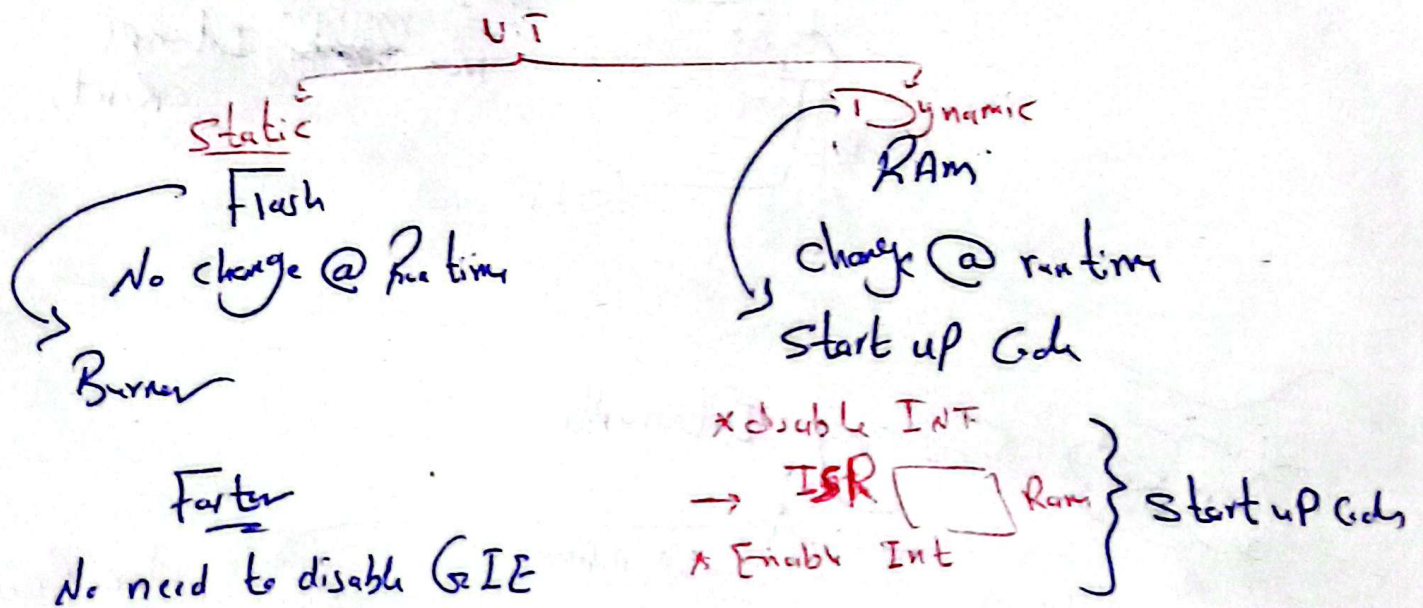 V.T
Static
Flash
No change @ Run time
Burner
Faster
No need to disable GIE
Dynamic
RAM
change @ runtime
Start up Code
* disable INT
→ ISR Ram
* Enable Int
Start up Code